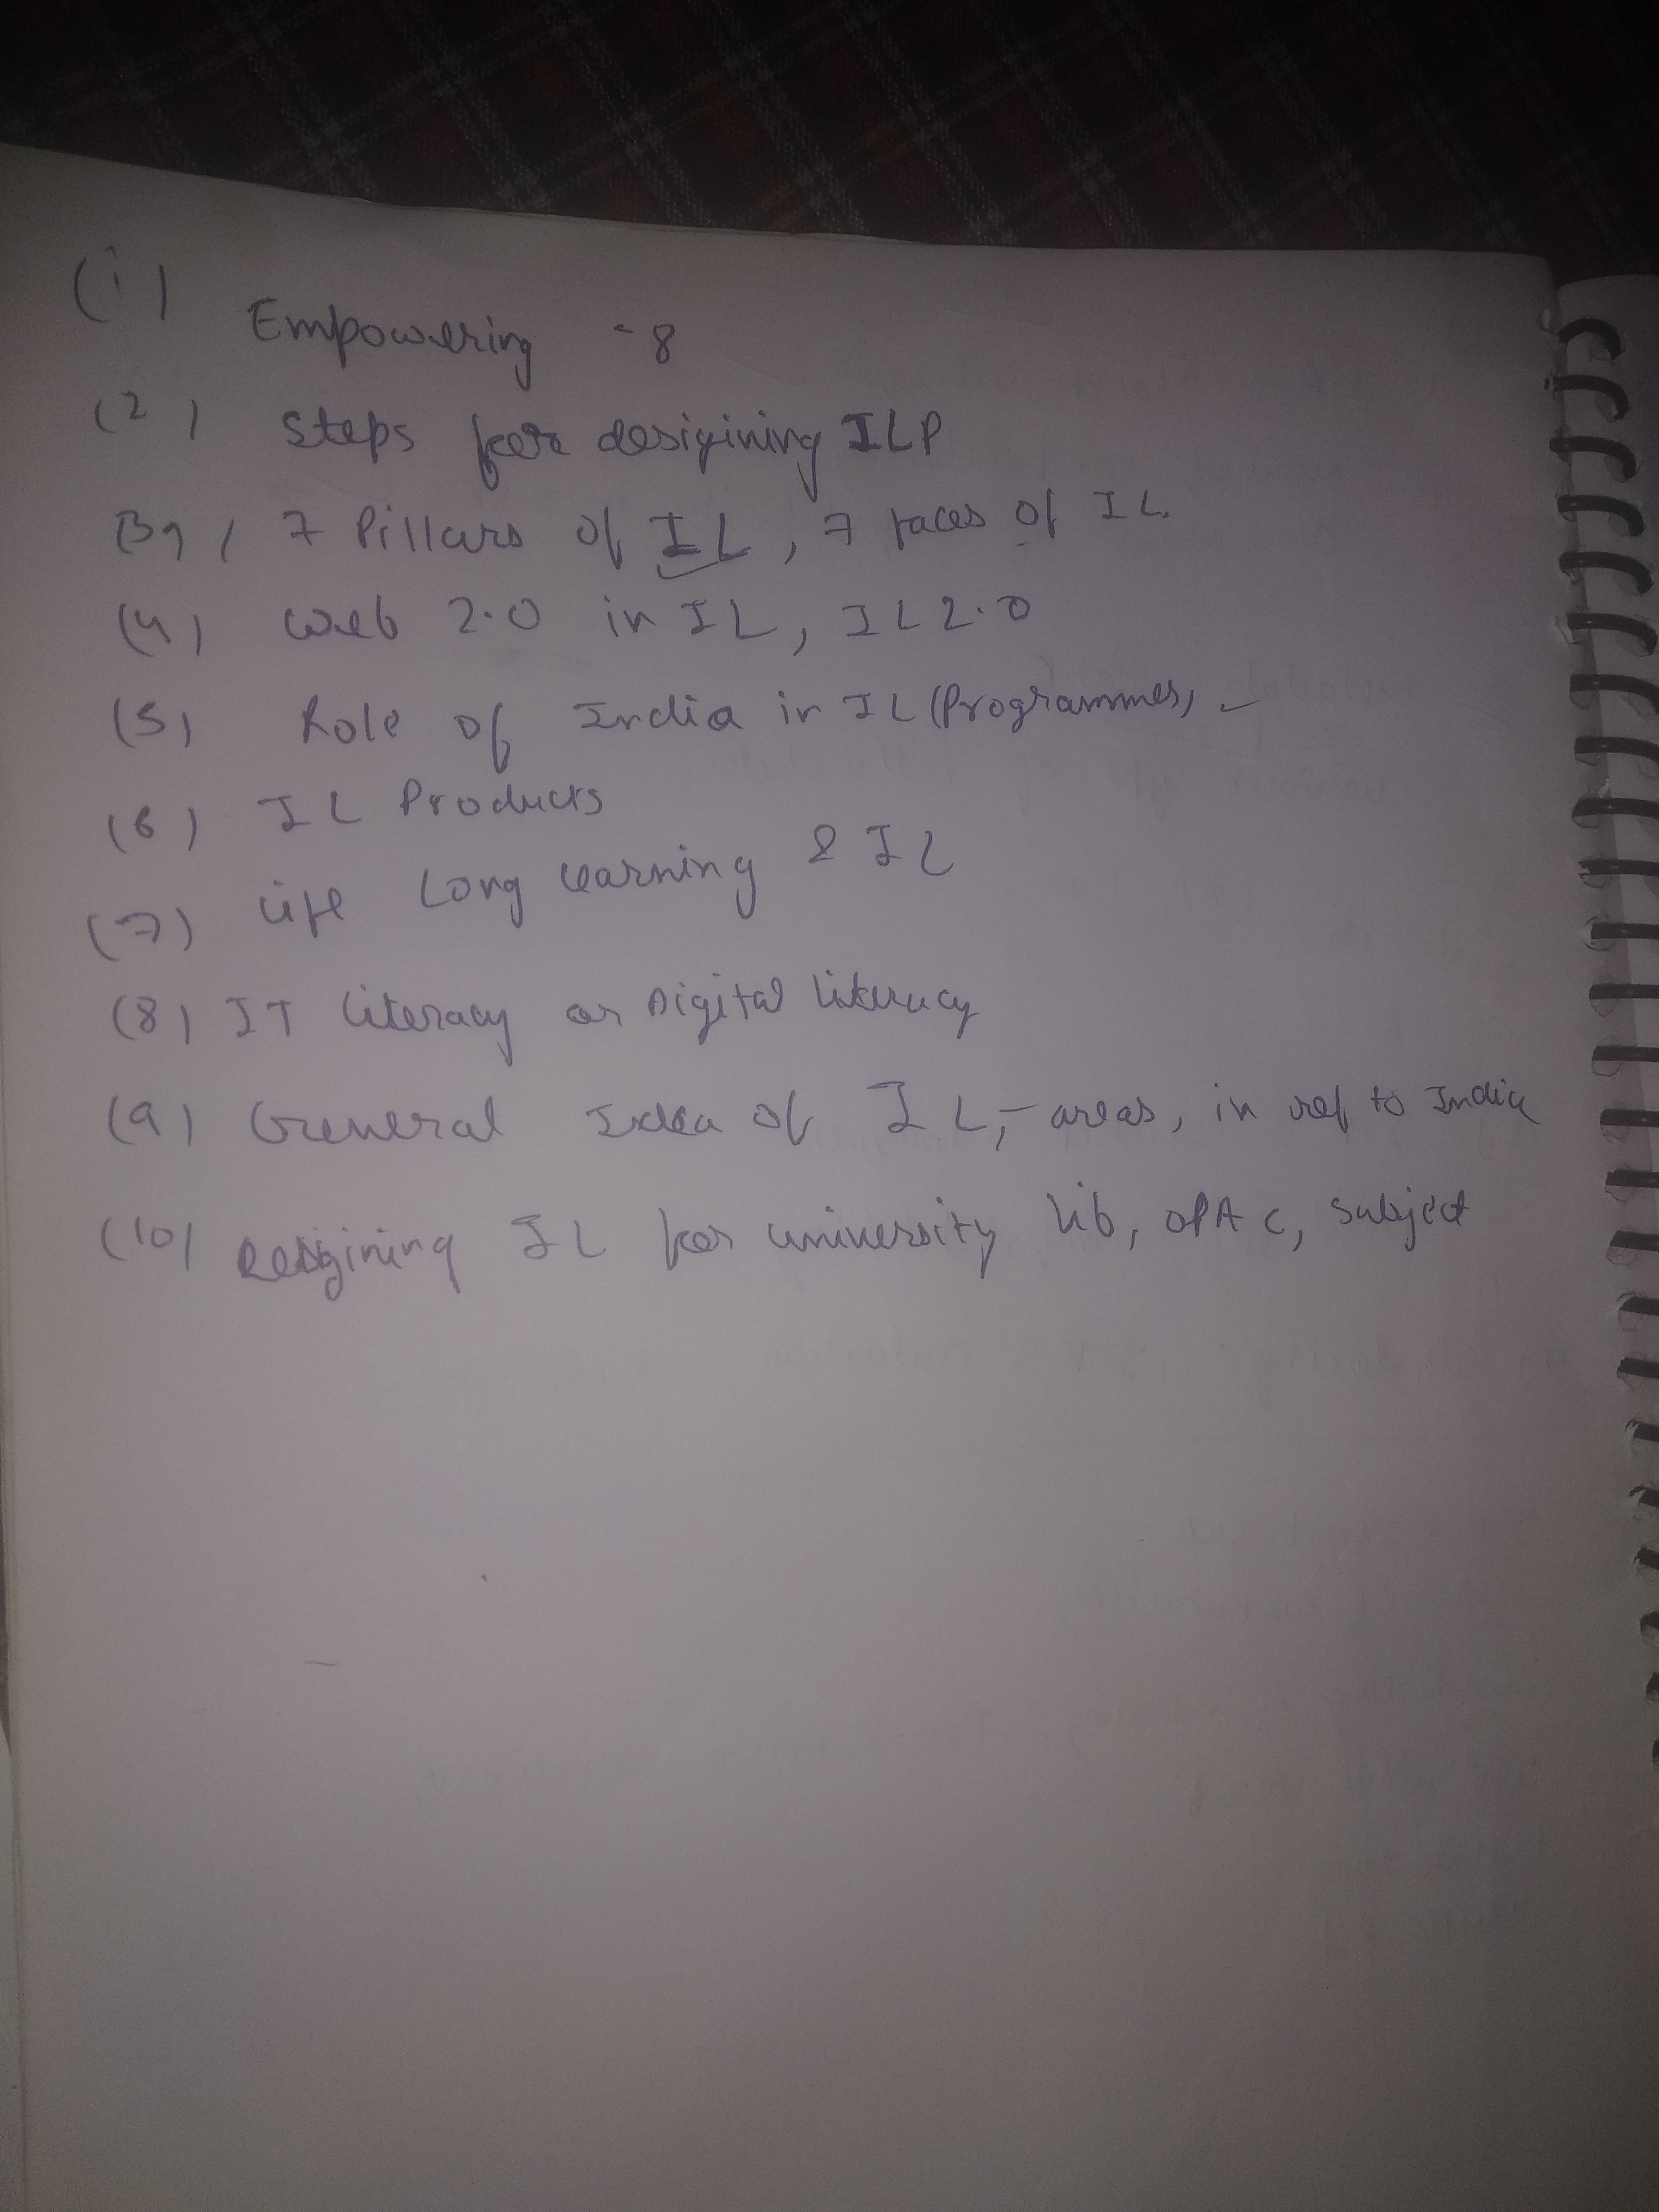 (1) Empowering -8
(2) Steps for desigining ILP
(3) 7 Pillars of IL, 7 faces of IL
(4) Web 2.0 in IL, IL 2.0
(5) Role of India in IL (Programmes,
(6) IL Products
(7) Life Long learning & IL
(8) IT Literacy or Digital literacy
(9) General Idea of IL, - areas, in ref to India
(10) Desigining IL for university lib, OPAC, subject